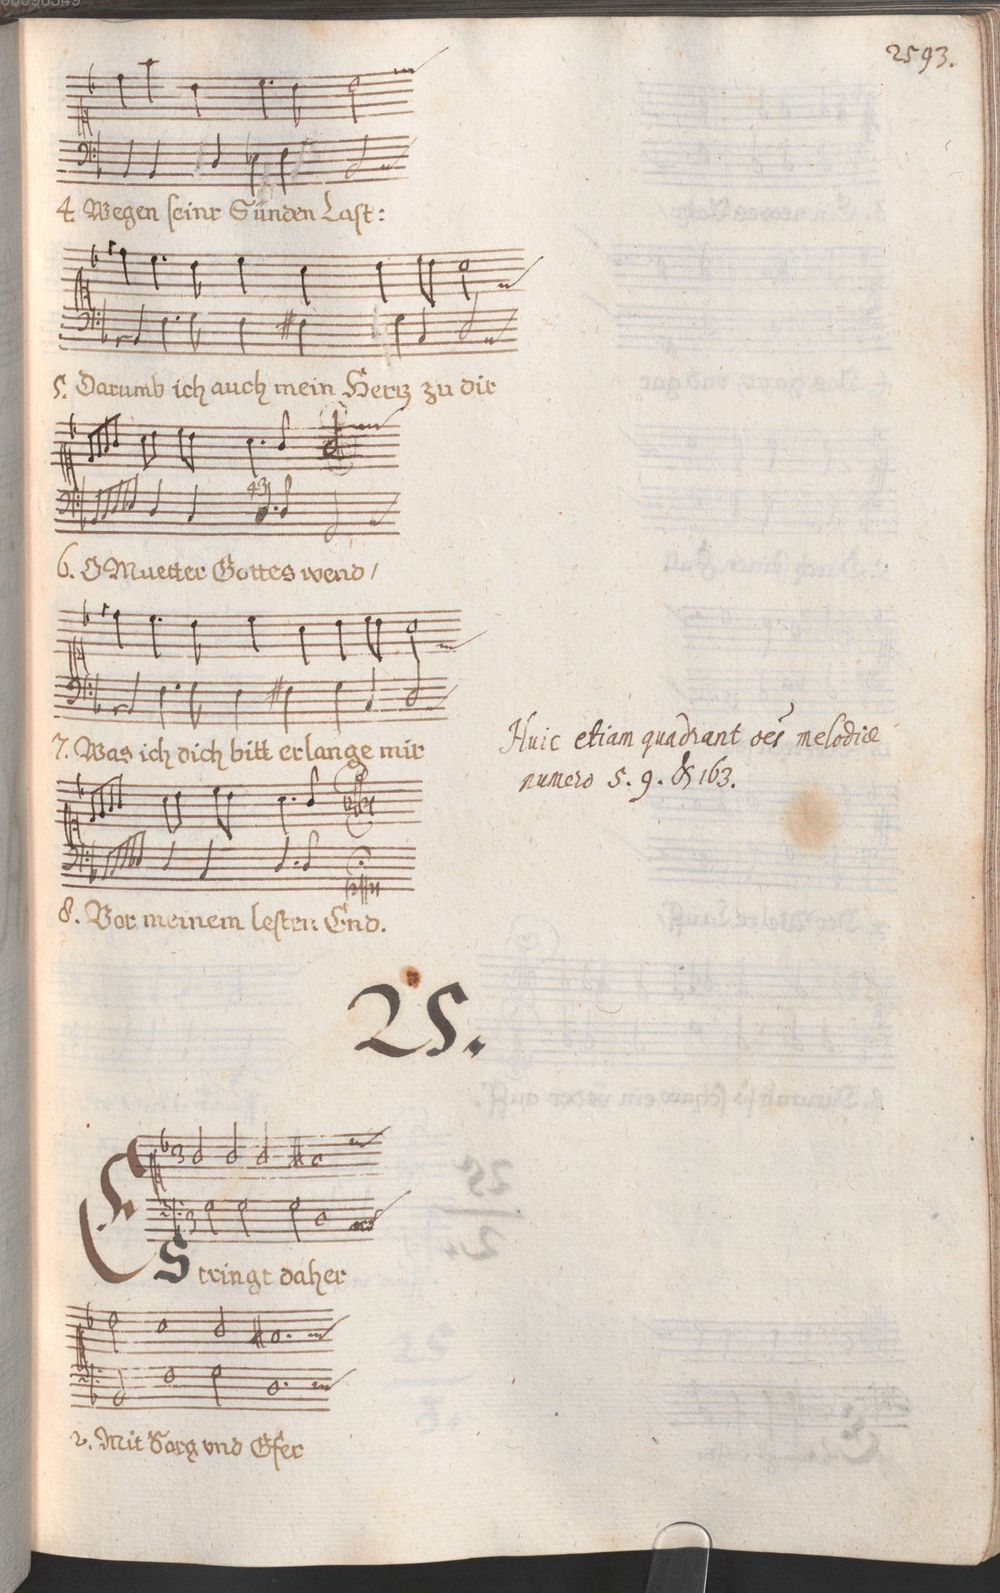 2593.
4. Wegen seinr Sünden Last:
5. Darumb ich auch mein Hertz zu dir
43
6. O Muetter Gottes wend /
7. Was ich dich bitt erlange mir
Huic etiam quadrant oes melodiæ
numero 5. 9. & 163.
8. Vor meinem lesten End.
25.
ES tringt daher
2. Mit Sorg vnd Gfer